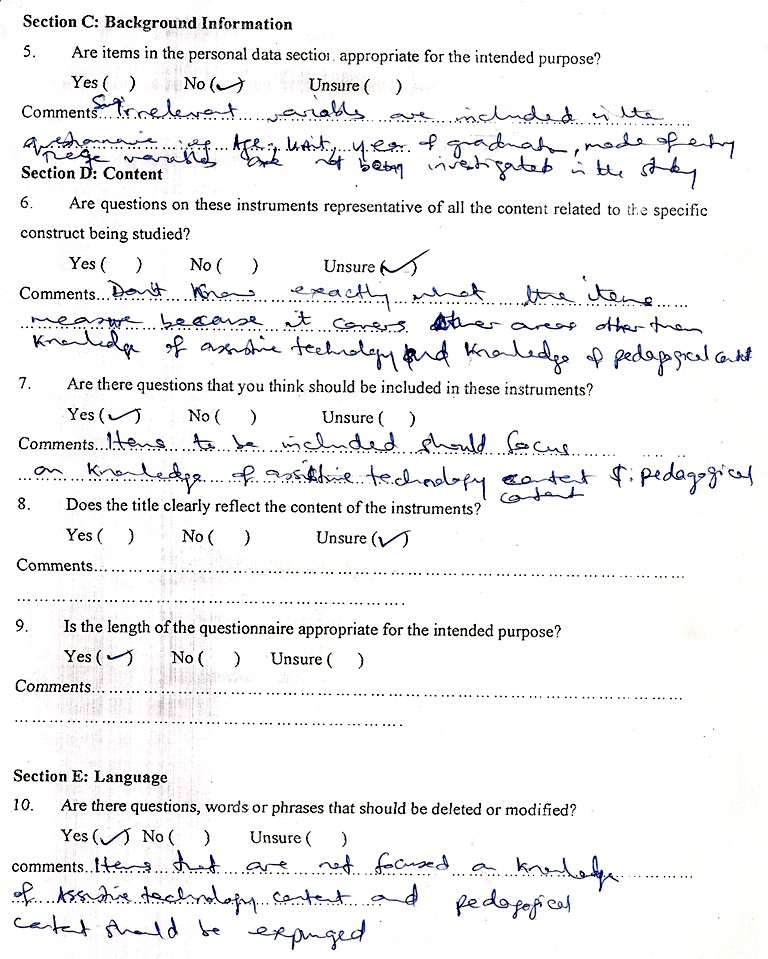 Section C: Background Information
5. Are items in the personal data section appropriate for the intended purpose?
Yes ( ) No (✓) Unsure ( )
Comments... Irrelevant variables are included in the
questionnaire eg Age, Unit, year of graduation, mode of entry
These variables are not being investigated in the study
Section D: Content
6. Are questions on these instruments representative of all the content related to the specific
construct being studied?
Yes ( ) No ( ) Unsure (✓)
Comments... Don't know exactly what the items
measure because it covers other areas other than
knowledge of assistive technology and knowledge of pedagogical content
7. Are there questions that you think should be included in these instruments?
Yes (✓) No ( ) Unsure ( )
Comments... Items to be included should focus
on knowledge of assistive technology content & pedagogical
content
8. Does the title clearly reflect the content of the instruments?
Yes ( ) No ( ) Unsure (✓)
Comments...
9. Is the length of the questionnaire appropriate for the intended purpose?
Yes (✓) No ( ) Unsure ( )
Comments...
Section E: Language
10. Are there questions, words or phrases that should be deleted or modified?
Yes (✓) No ( ) Unsure ( )
comments. Items that are not focused on knowledge
of Assistive technology content and pedagogical
content should be expunged